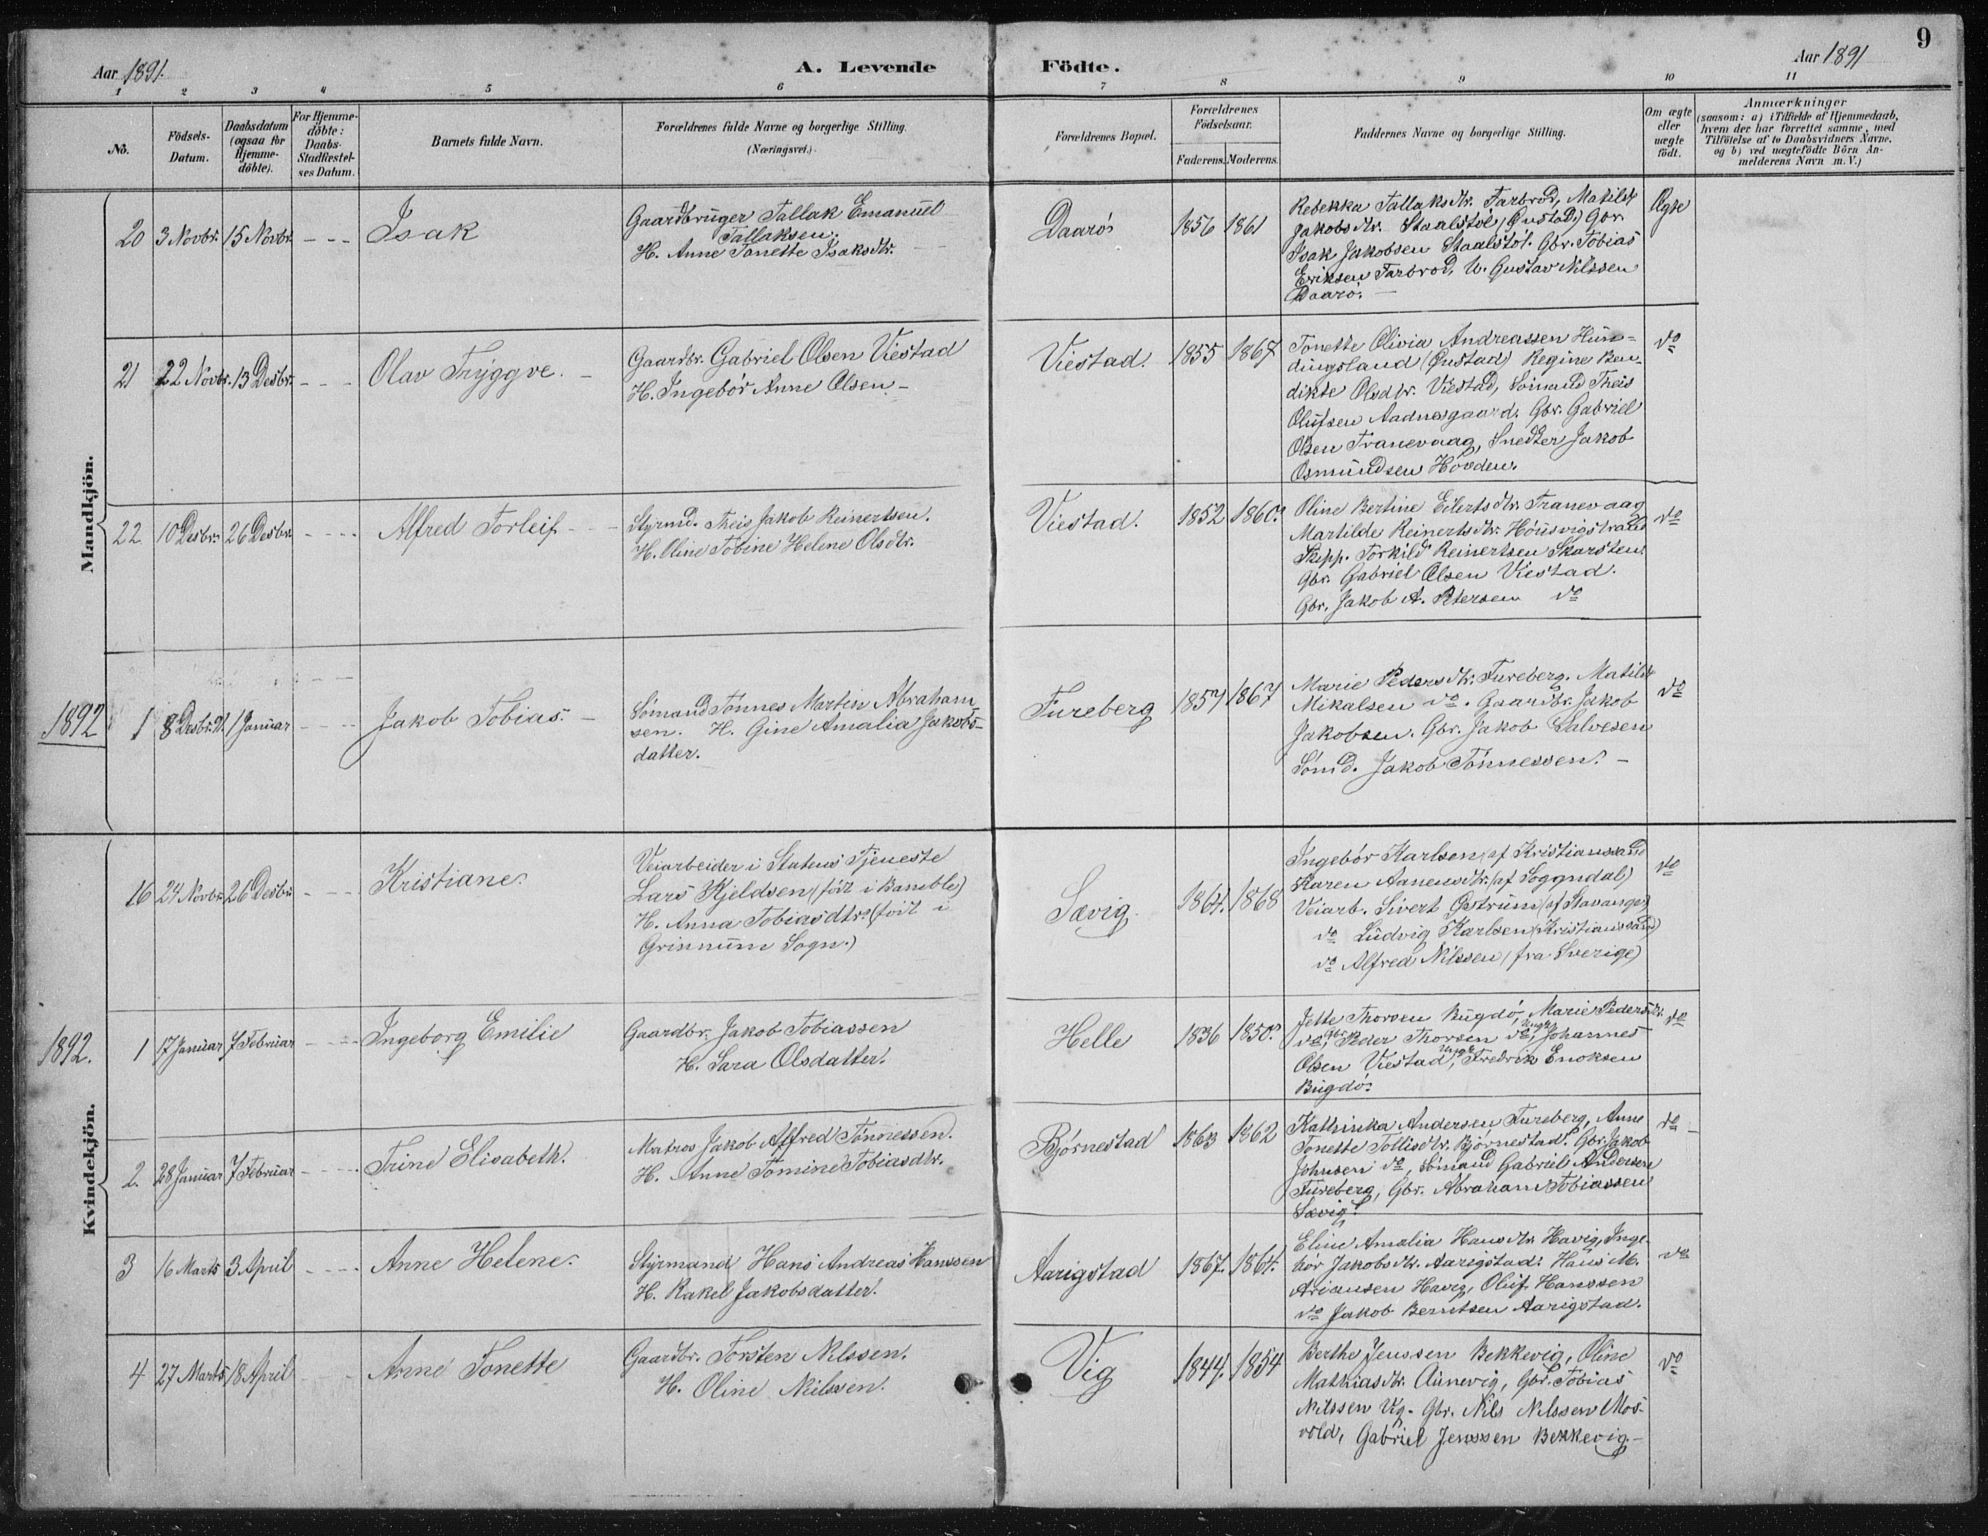 9
Aar 1891.
A. Levende Födte.
Aar 1891
1 2 3 4 5 6 7 8 9 10 11
No.
Födsels-
Datum.
Daabsdatum
(ogsaa for
Hjemme-
döbte).
For Hjemme-
döbte:
Daabs-
Stadfæstel-
ses Datum.
Barnets fulde Navn.
Forældrenes fulde Navne og borgerlige Stilling.
(Næringsvei.)
Forældrenes Bopæl.
Forældrenes
Födselsaar.
Faderens. Moderens.
Faddernes Navne og borgerlige Stilling.
Om ægte
eller
uægte
født.
Anmærkninger
(saasom: a) i Tilfælde af Hjemmedaab,
hvem der har forrettet samme, med
Tilföielse af to Daabsvidners Navne,
og b) ved uægtefödte Börn An-
melderens Navn m. V.)
Mandkjön.
20 3 Novbr. 15 Novbr. Isak
Gaardbruger Tallak Emanuel
Tallaksen.
H. Anne Tonette Isaksdtr.
Daarø. 1856 1861
Rebekka Tallaksdtr. Farbrod, Matilde
Jakobsdtr. Staalstøl (Qustad) Gbr.
Isak Jakobsen Staalstøl. Gbr. Tobias
Eriksen Farbrod, U. Gustav Nilssen
Daarø.
Ægte
21 22 Novbr. 13 Desbr. Olav Trÿggve.
Gaardbr. Gabriel Olsen Viestad
H. Ingebor Anne Olsen
Viestad. 1855 1867
Tonette Olivia Andreassen Hun-
dingsland (Qustad) Regine Ben-
dikte Olsdtr. Viestad, Sömand Theis
Olufsen Aadnesgaard. Gbr. Gabriel
Olsen Tranevaag, Snedker Jakob
Osmundsen Hövden.
do
22 10 Desbr. 26 Desbr. Alfred Torleif
Styrmd. Theis Jakob Reinertsen.
H. Oline Tobine Helene Olsdtr.
Viestad. 1852 1860.
Oline Bertine Eilertsdtr. Tranevaag
Martilde Reinertsdtr. Hönsvigstrand
Skipp. Torkild Reinertsen Skarsten.
Gbr. Gabriel Olsen Viestad.
Gbr. Jakob A. Petersen do
do
1892 1 8 Desbr. 91. 1 Januar Jakob Tobias.
Sömand Tönnes Martin Abraham
sen. H. Gine Amalia Jakobs-
datter.
Fureberg 1857 1867
Marie Pedersdtr. Fureberg. Matilde
Mikalsen do. Gaardbr. Jakob
Jakobsen. Gbr. Jakob Salvesen
Sömd. Jakob Tönnessen.
do
Kvindekjön.
16 24 Novbr. 26 Desbr. Kristiane.
Veiarbeider i Statens Tjeneste
Lars Kjeldsen (föit i Bamble)
H. Anna Tobiasdtr. (föit i
Grinnum Sogn.)
Sævig. 1864. 1868
Ingebör Karlsen (af Kristianssand
Karen Aanensdtr. (af Soggndal)
Veiarb. Sivert Östrum (af Stavanger)
do Ludvig Karlsen (Kristianssand)
do Alfred Nilssen (fra Sverige)
do
1892. 1 17 Januar 7 Februar Ingeborg Emilie
Gaardbr. Jakob Tobiassen
H. Sara Olsdatter.
Helle 1836 1850.
Jette Thorsen Bugdö, Marie Pedersdtr.
do, Gbr. Peder Thorsen do, Johannes
Olsen Viestad, Fredrik Enoksen
Bugdö.
do
2. 28 Januar 7 Februar Trine Elisabeth.
Matros Jakob Alfred Tönnessen.
H. Anne Tomine Tobiasdtr.
Bjørnestad 1863 1862
Kathinka Andersen Fureberg, Anne
Tonette Tollisdtr. Bjørnestad. Gbr. Jakob
Johnsen do, Sömand Gabriel Andersen
Fureberg, Gbr. Abraham Tobiassen
Sævig.
do
3 16 Marts 3 April Anne Helene.
Styrmand Hans Andreas Hanssen
H. Rakel Jakobsdatter.
Aarigstad 1867. 1864.
Eline Amalia Hansdtr. Havig, Inge-
bör Jakobsdtr. Aarigstad. Hans M.
Ariansen Havig, Oluf Hanssen
do Jakob Berntsen Aarigstad.
do
4 27 Marts 18 April Anne Tonette
Gaardbr. Torsten Nilssen.
H. Oline Nilssen.
Vig 1844. 1854
Berthe Jenssen Bekkevig, Oline
Mathiasdtr. Aunevig, Gbr. Tobias
Nilssen Vig. Gbr. Nils Nilssen Mos-
vold, Gabriel Jenssen Bekkevig.
do